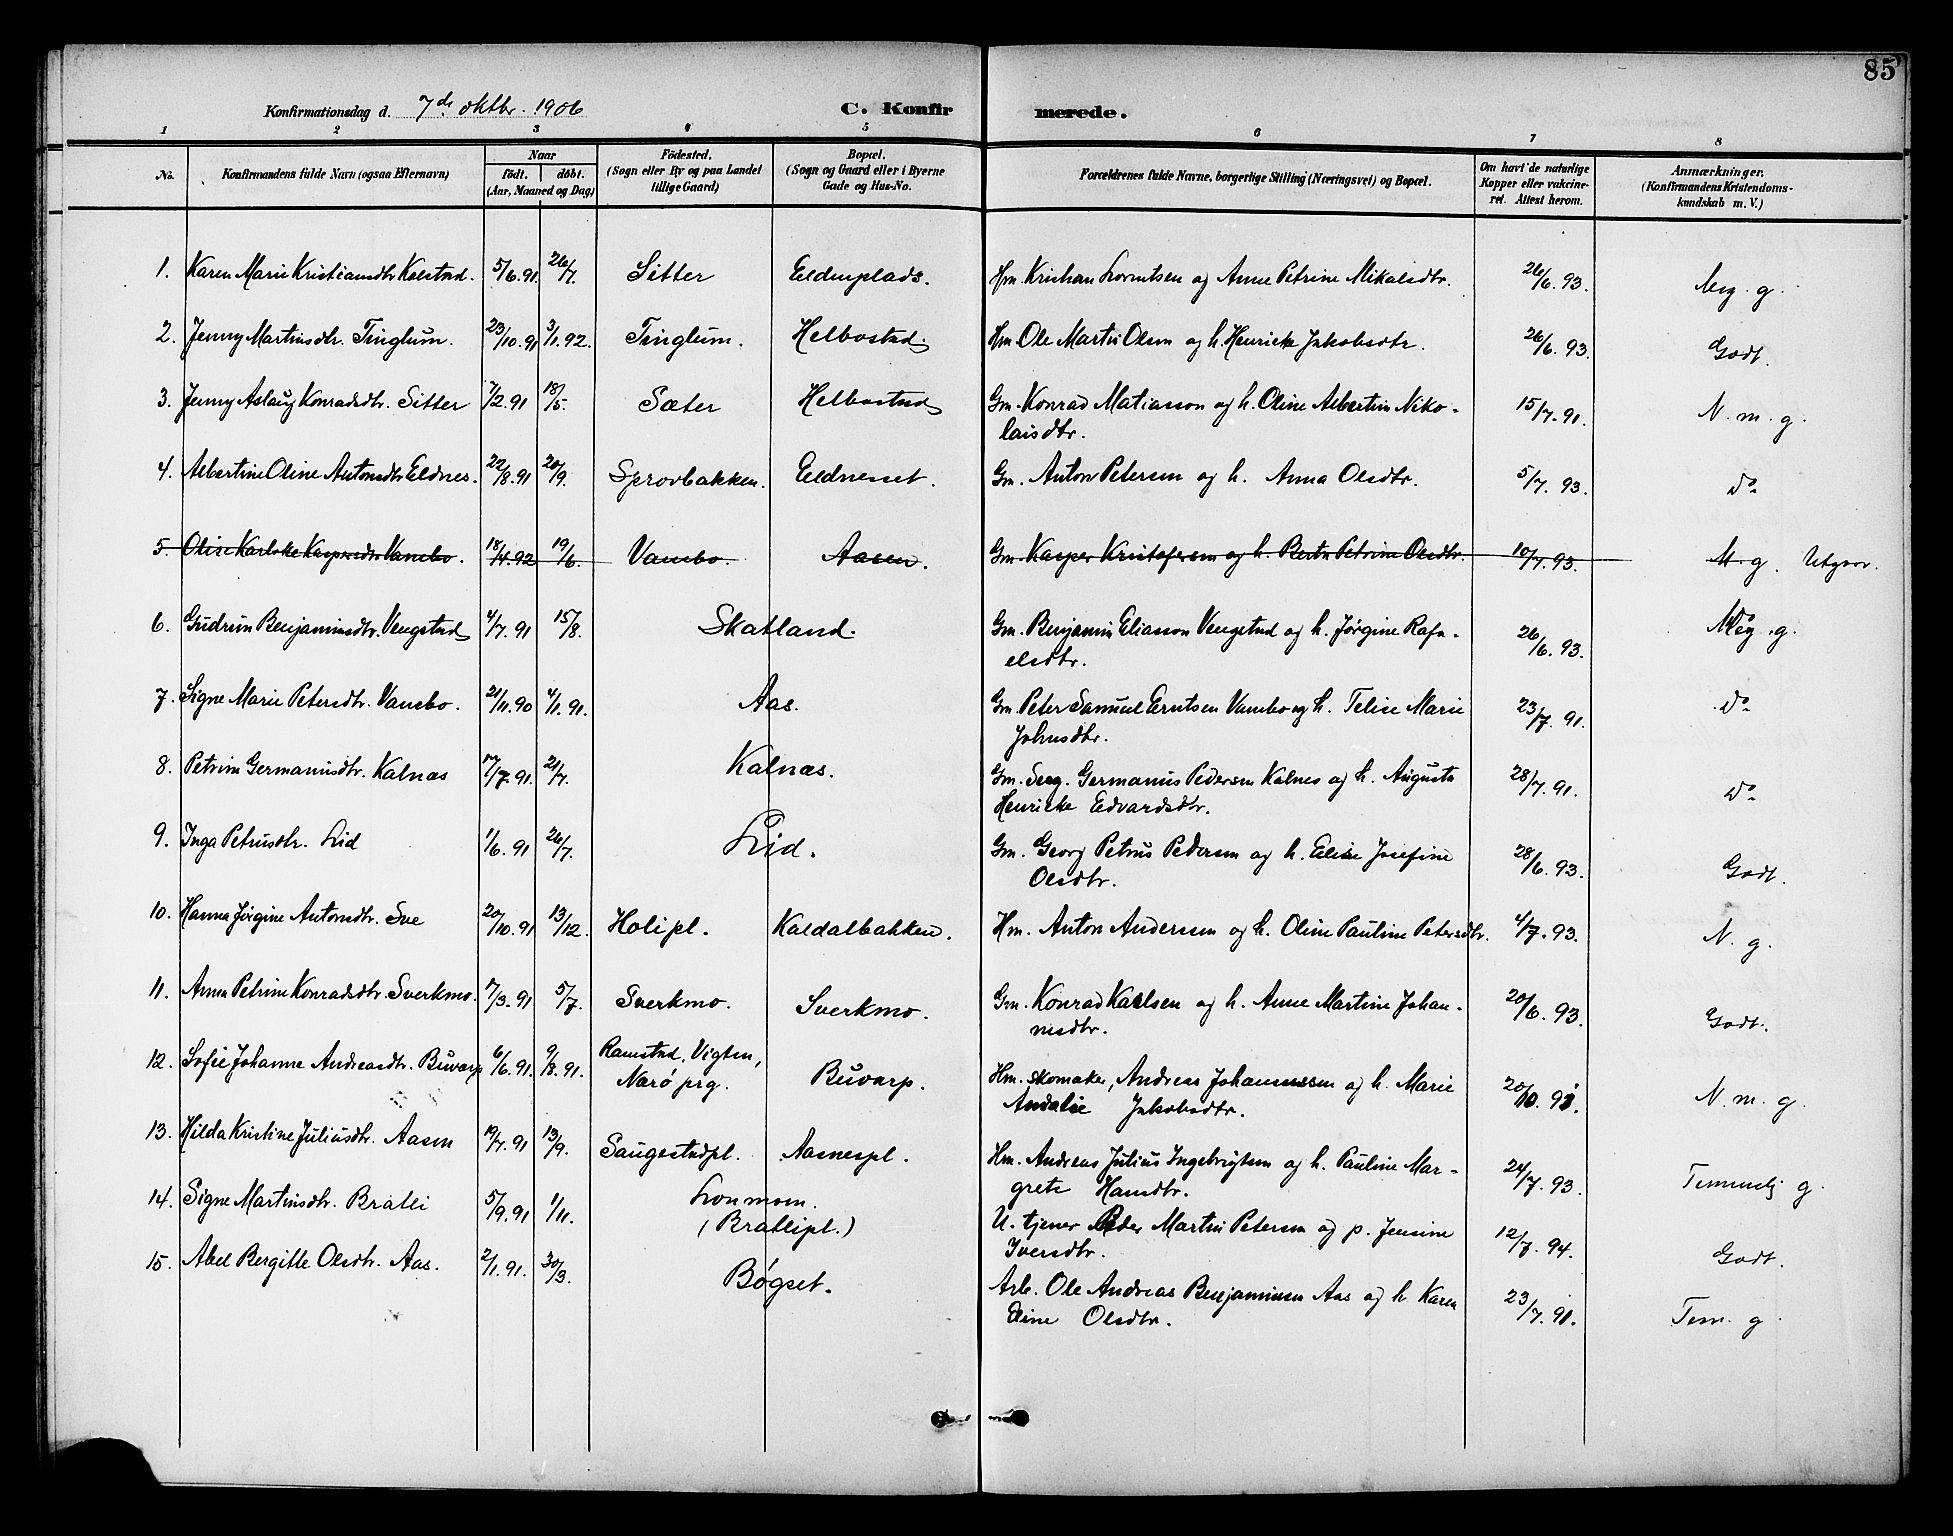 85
Konfirmationsdag d. 7de oktbr. 1906 C. Konfirmerede.
1 2 3 4 5 6 7 8
No. Konfirmandens fulde Navn (ogsaa Efternavn) Naar født. døbt. (Aar, Maaned og Dag) Fødested. (Sogn eller By og paa Landet tillige Gaard) Bopæl. (Sogn og Gaard eller i Byerne Gade og Hus-No. Forældrenes fulde Navne, borgerlige Stilling (Næringsvei) og Bopæl. Om havt de naturlige Kopper eller vakcineret. Attest herom. Anmærkninger. (Konfirmandens Kristendomskundskab m. V.)
1. Karen Marie Kristiansdtr Kolstad. 5/6.91 26/7. Sitter Eldnesplads. Hm. Kristian Lorntsen og Anne Petrine Mikalsdtr. 26/6.93. Meg. g.
2. Jenny Martinsdtr. Tinglum. 23/10.91 3/1.92. Tinglum. Helbostad. Hm. Ole Martin Olsen og h. Henrikke Jakobsdtr. 26/6.93. Godt.
3. Jenny Aslaug Konradsdtr. Sitter 7/2.91 18/5. Sæter Helbostad Gm. Konrad Matiasson og h. Oline Albertin Niko-
laisdtr. 15/7.91. N. m. g.
4. Albertine Oline Antonsdtr Eldnes. 22/8.91 20/9. Sprovbakken. Eldneset. Gm. Anton Petersen og h. Anna Olsdtr. 5/7.93. do
5. Kaspersdtr Vansbo. 18/4.92 19/6. Vansbo. Aasen. Gm. Kasper Kristofersen og h. Berta Petrine Olsdtr. 10/7.93. M. g. Utgaar.
6. Gudrun Benjaminsdtr. Vengstad 4/7.91 15/8. Skatland. Gm. Benjamin Eliasson Vengstad og h. Jørgine Rafa-
elsdtr. 26/6.93. Meg. g.
7. Signe Marie Petersdtr. Vansbo. 21/11.90 4/1.91. Aas. Gm. Peter Samuel Erntsen Vansbo og h. Telise Marie
Johnsdtr. 23/7.91. do
8. Petrine Germanusdtr. Kalnæs 17/7.91. 21/7. Kalnæs. Gm. Serg. Germanus Pedersen Kalnes og h. Augusta
Henrikke Edvardsdtr. 28/7.91. do
9. Inga Petrusdtr. Lid 1/6.91 26/7. Lid. Gm. Georg Petrus Pedersen og h. Elise Josefine
Olsdtr. 28/6.93. Godt.
10. Hanna Jørgine Antonsdtr. Sve 20/10.91 13/12. Holipl. Kaldalbakken. Hm. Anton Andersen og h. Oline Pauline Petersdtr. 4/7.93. N. g.
11. Anna Petrine Konradsdtr. Sverkmo. 7/3.91 5/7. Sverkmo. Sverkmo. Gm. Konrad Karlsen og h. Anne Martine Johan-
nesdtr. 20/6.93. Godt.
12. Sofie Johanne Andreasdtr. Buvarp 6/6.91. 9/8.91. Ramstad, Vigten,
Nærø prg. Buvarp. Hm. skomaker, Andreas Johannessen og h. Marie
Andalie Jakobsdtr. N. m. g.
13. Hilda Kristine Juliusdtr. Aasen 19/7.91 13/9. Saugestadpl. Aasnespl. Hm. Andreas Julius Ingebrigtsen og h. Pauline Mar-
grete Hansdtr. 24/7.93. Temmelig g.
14. Signe Martinsdtr. Bratli 5/9.91 1/11. Lonmoen.
(Bratlipl.) U. tjener Peder Martin Petersen og p. Jensine
Iversdtr. 12/7.94. Godt.
15. Abel Bergitte Olsdtr. Aas. 2/1.91. 30/3. Bøgset. Arb. Ole Andreas Benjaminsen Aas og h. Karen
Eline Olsdtr. 23/7.91. Tem. g.